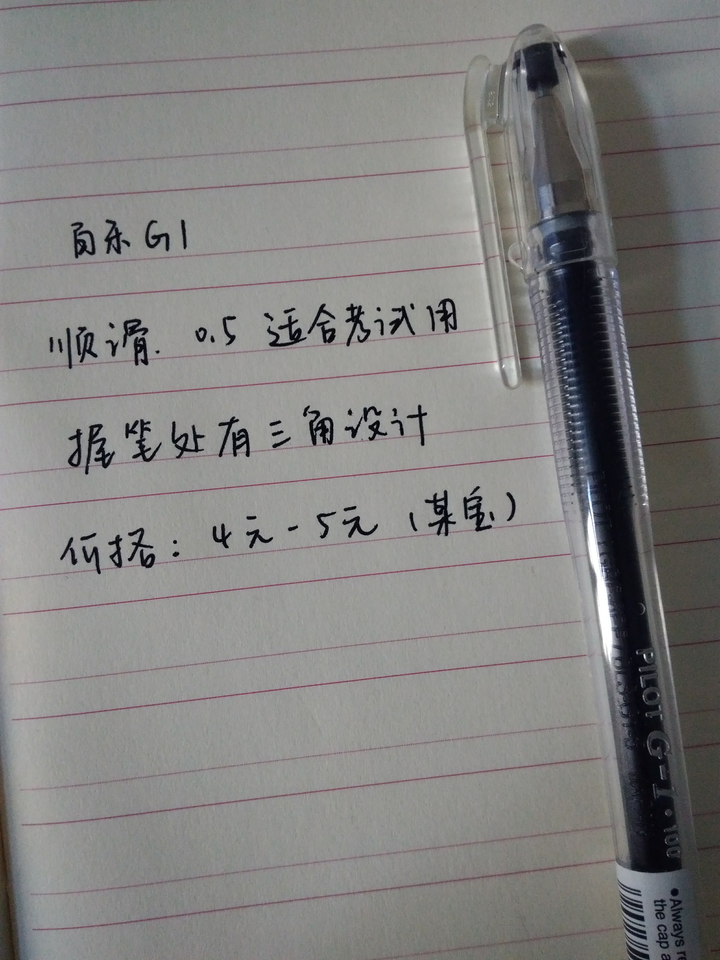 百乐G1
顺滑. 0.5 适合考试用
握笔处有三角设计
价格: 4元-5元 (某宝)
PILOT G-1・100
•Always re
the cap a